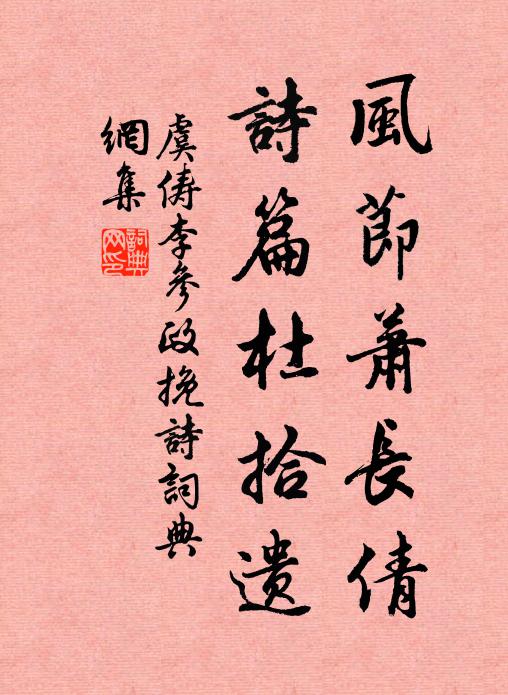 風節蕭長倩
詩篇杜拾遺
虞俦李參政挽詩詞典
網集
詞典網印